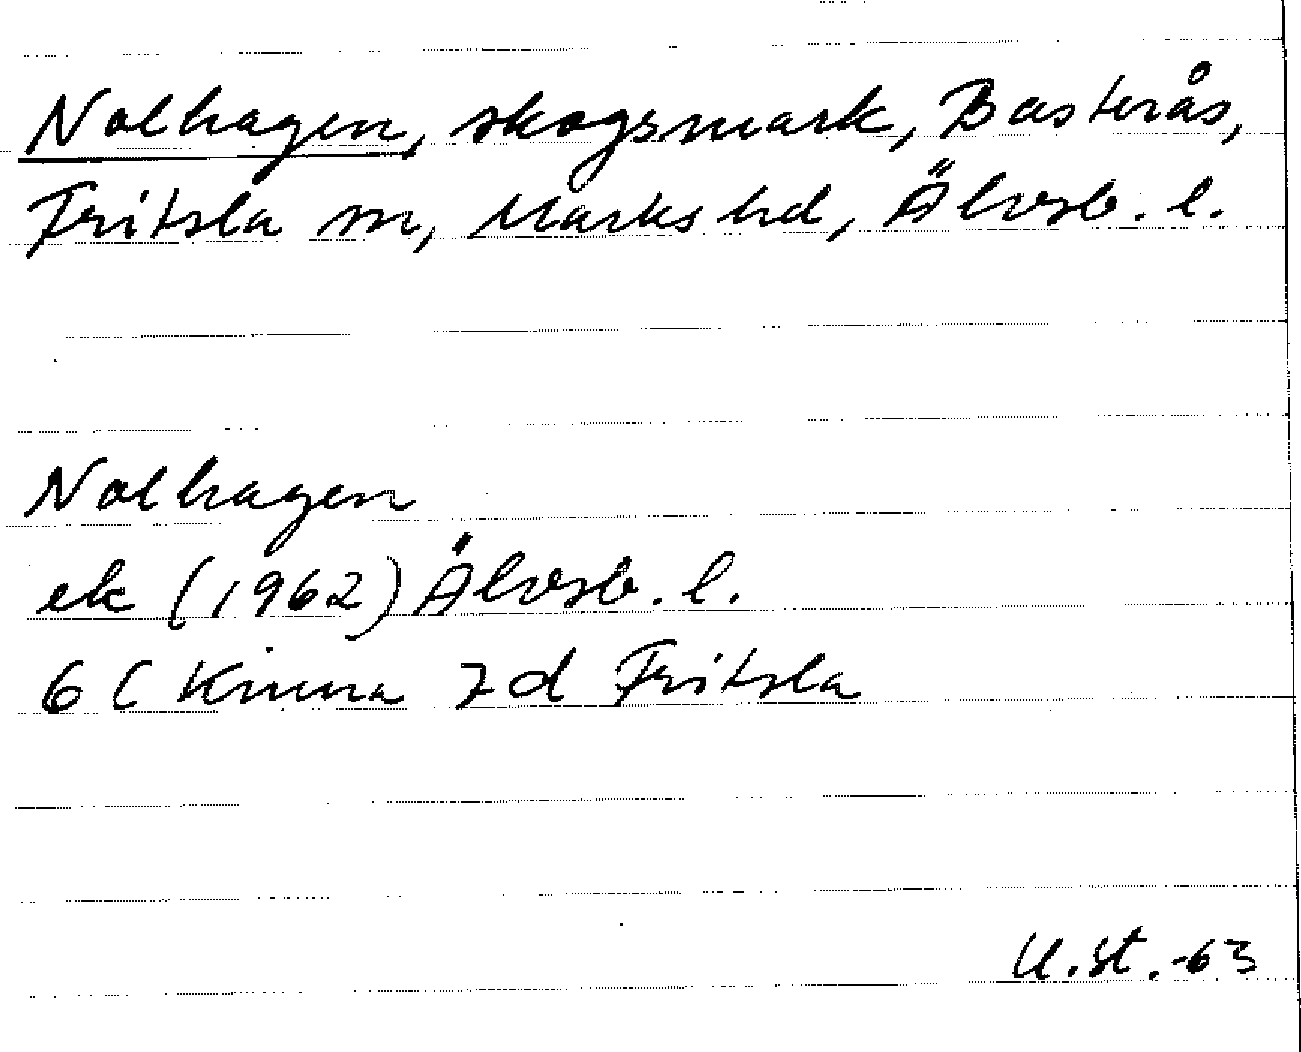 Nolhagen, skogsmark, Basterås,
Fritsla sn, Marks hd, Älvsb. l.
Nolhagen
ek (1962) Älvsb. l.
6 C Kinna 7d Fritsla
U.St.-63